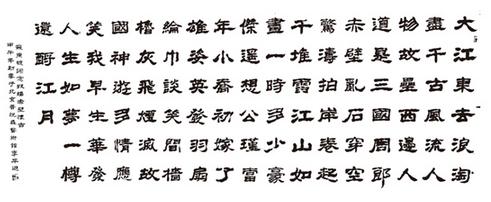 大江東去浪淘
盡千古風流人
物故壘西邊人
道是三國周郎
赤壁亂石穿空
驚濤拍岸卷起
千堆雪江山如
畫一時多少豪
傑遙想公瑾當
年小喬初嫁了
雄姿英發羽扇
綸巾談笑間檣
櫓灰飛煙滅故
國神遊多情應
笑我早生華發
人生如夢一樽
還酹江月
蘇東坡詞念奴嬌赤壁懷古